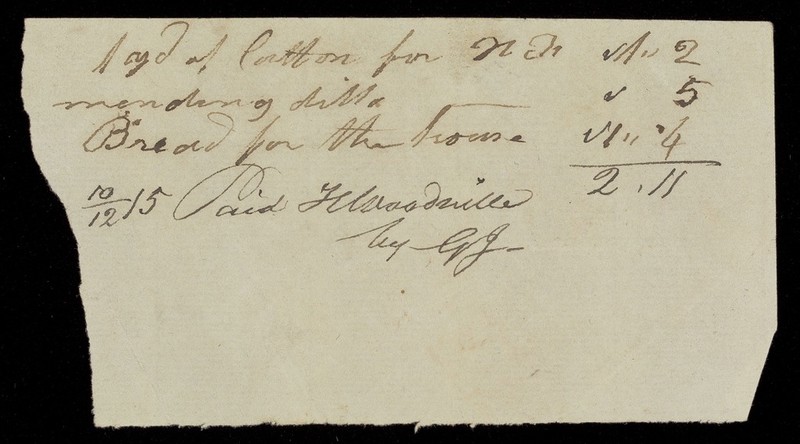 1 yd of Cotton for 1 " 2
mending ditto " 5
Bread for the house 1 " 4
2 . 11
10/12 15 Paid Woodville
by GJ